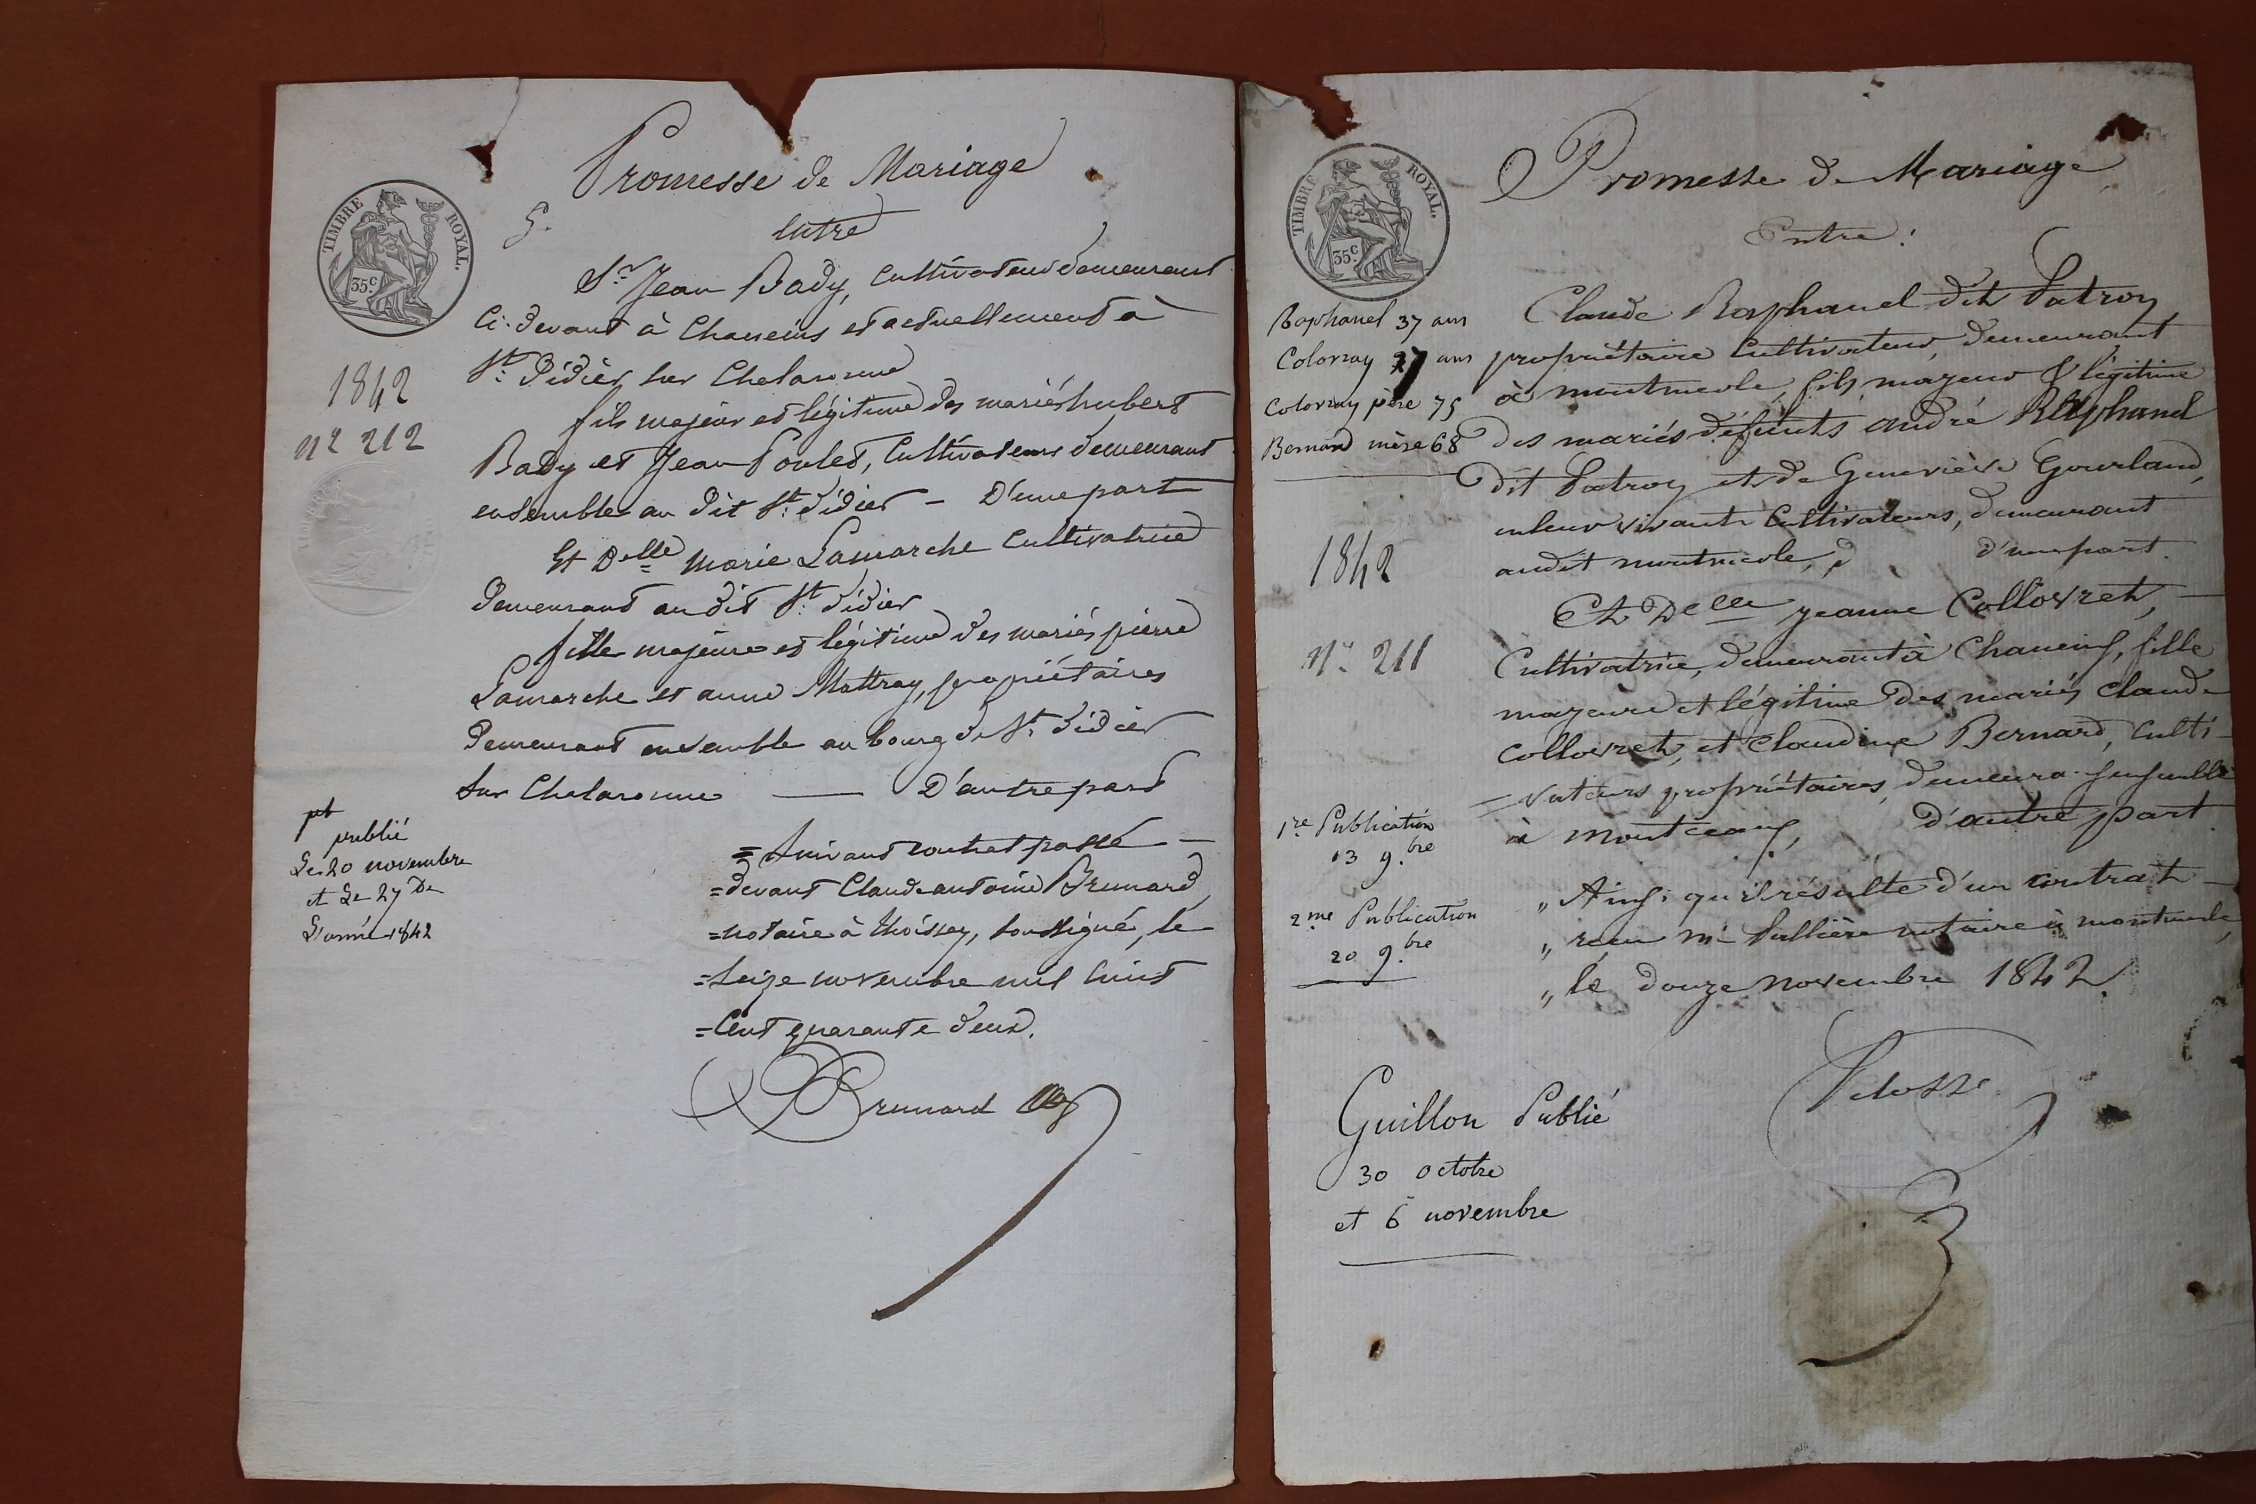 Promesse de Mariage
Entre
TIMBRE ROYAL.
35 c.
Sr. Jean Bady, Cultivateur demeurant
Ci-devant à Chaneins et actuellement à
St. Didier sur Chalaronne
fils majeur et légitime des mariés hubert
Bady et Jean Poulet, Cultivateurs demeurant
ensemble au dit St. Didier — D'une part
Et Delle Marie Lamarche Cultivatrice
Demeurant au dit St. Didier
fille majeure et légitime des mariés pierre
Lamarche et anne Mattray, propriétaires
Demeurant ensemble au bourg de St. Didier
Sur Chalaronne — D'autre part
= Suivant contrat passé —
= devant Claude antoine Brunard,
= notaire à Thoissey, soussigné, le
= Seize novembre mil huit
= Cent quarante deux.
Brunard
1842
No 212
publié
Le 20 novembre
et Le 27 De
L'année 1842
Promesse de Mariage
Entre :
TIMBRE ROYAL.
35 c.
Claude Raphanel dit Patroy
propriétaire Cultivateur, demeurant
à montmerle, fils majeur & légitime
des mariés défunts andré Raphanel
dit Patroy et de Geneviève Gourland,
en leur vivant Cultivateurs, demeurant
audit montmerle, d'une part.
Et Delle jeanne Collovret, —
Cultivatrice, demeurant à Chaneins, fille
majeure et légitime des mariés Claude
Collovret, et Claudine Bernard, Culti-
= vateurs propriétaires, demeurant ensemble
à Montceaux, d'autre part.
„ Ainsi qu'il résulte d'un contrat —
„ reçu Me notaire à montmerle,
„ le douze novembre 1842.
Raphanel 37 ans
Colovray 27 ans
Colovray père 75
Bernard mère 68
1842
No 211
1re Publication
13 9.bre
2me Publication
20 9.bre
Guillon Publié
30 octobre
et 6 novembre